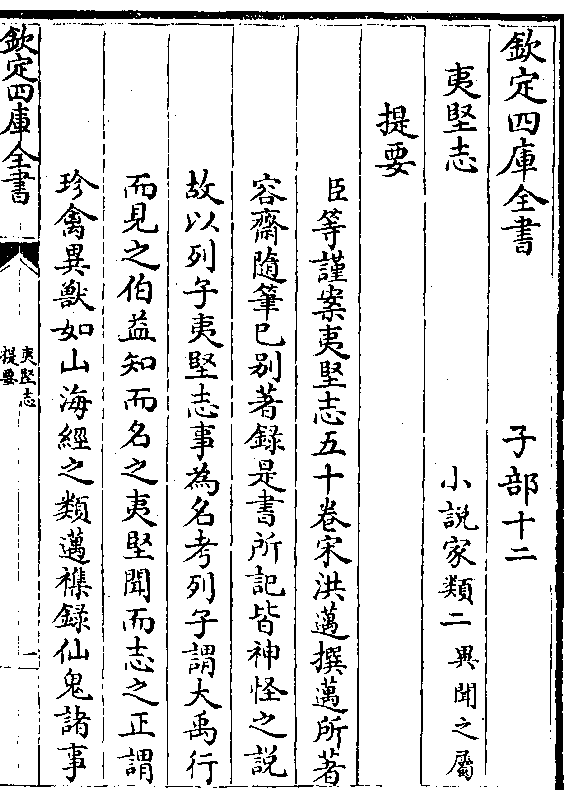 欽定四庫全書　　　子部十二
夷堅志　　　小說家類二異聞之屬
提要
臣等謹案夷堅志五十卷宋洪邁撰邁所著
容齋隨筆已別著錄是書所記皆神怪之說
故以列子夷堅志事為名考列子謂大禹行
而見之伯益知而名之夷堅聞而志之正謂
珍禽異獸如山海經之類邁襍錄仙鬼諸事
欽定四庫全書
夷堅志
提要
一